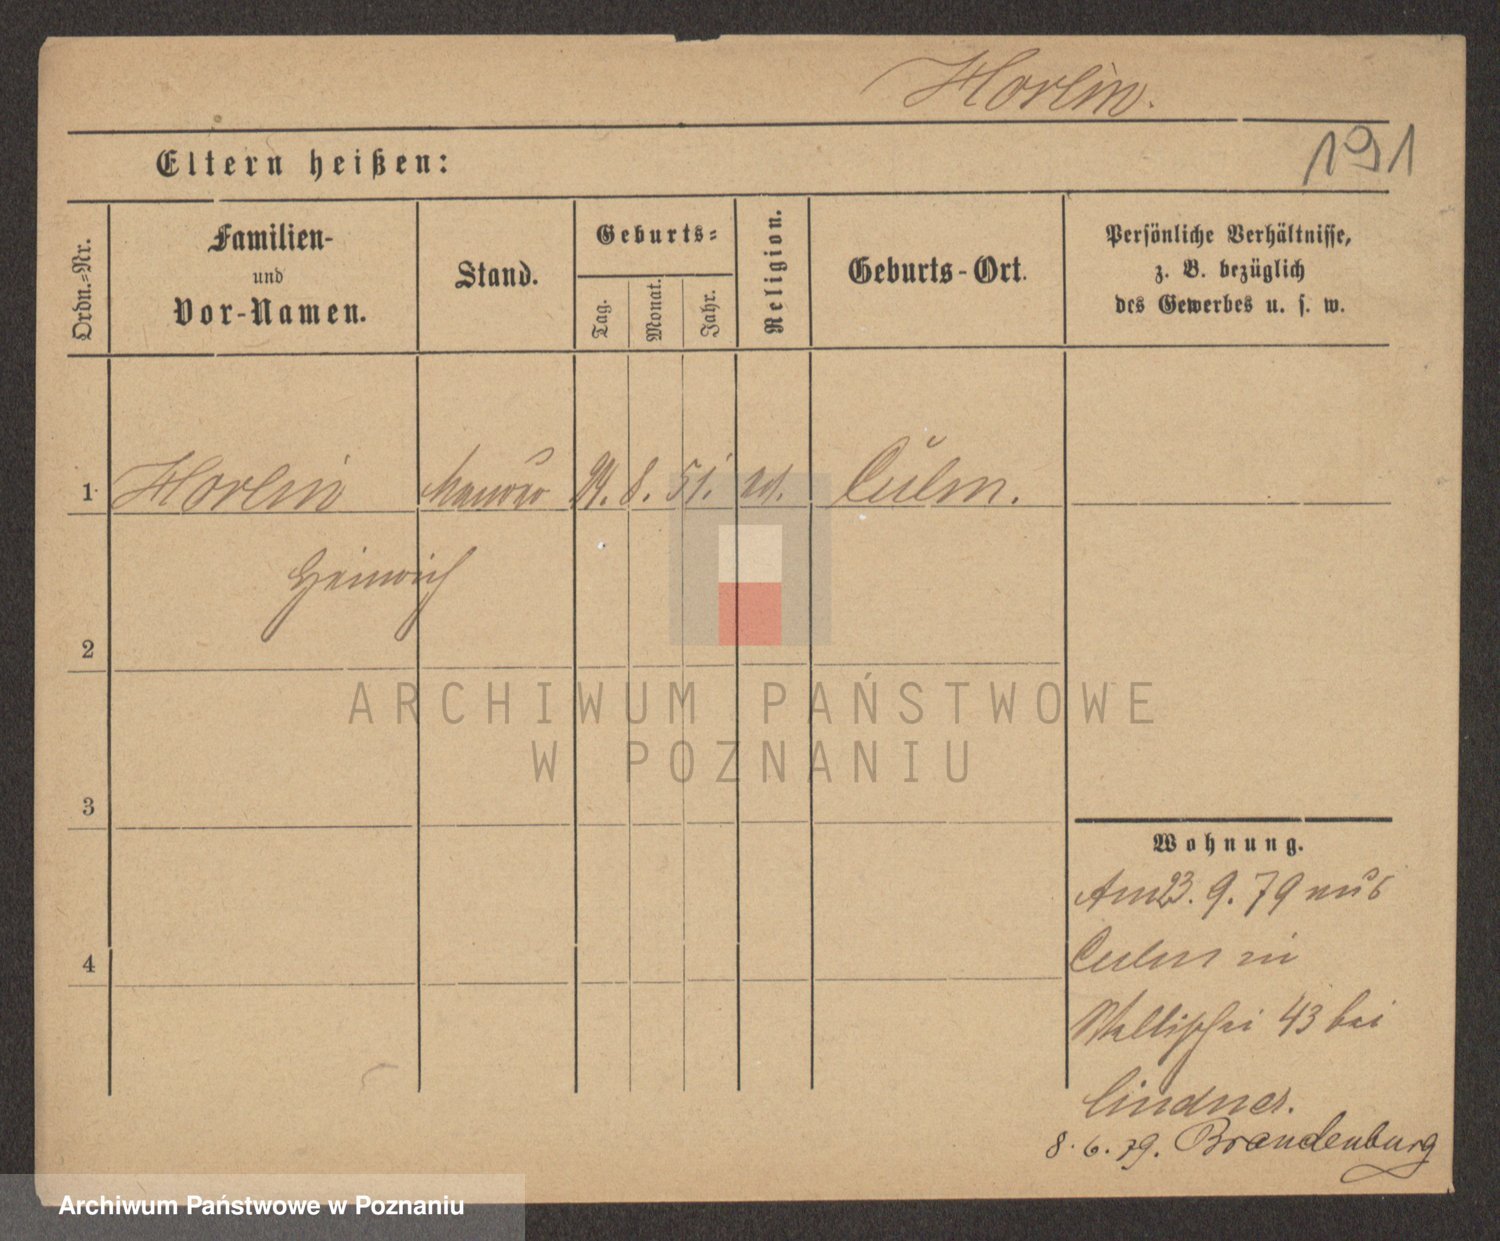 Horlin.
191
Eltern heißen:
Ordn.-Nr.
Familien-
und
Vor-Namen.
Stand.
Geburts-
Tag.
Monat.
Jahr.
Religion.
Geburts-Ort.
Persönliche Verhältnisse,
z. B. bezüglich
des Gewerbes u. s. w.
1 Horlin 8. 51. Culm.
Heinrich
2
3
4
Wohnung.
Am 23. 9. 79 aus
Culm in
43 bei
Lindner.
8. 6. 79. Brandenburg
ARCHIWUM PAŃSTWOWE
W POZNANIU
Archiwum Państwowe w Poznaniu